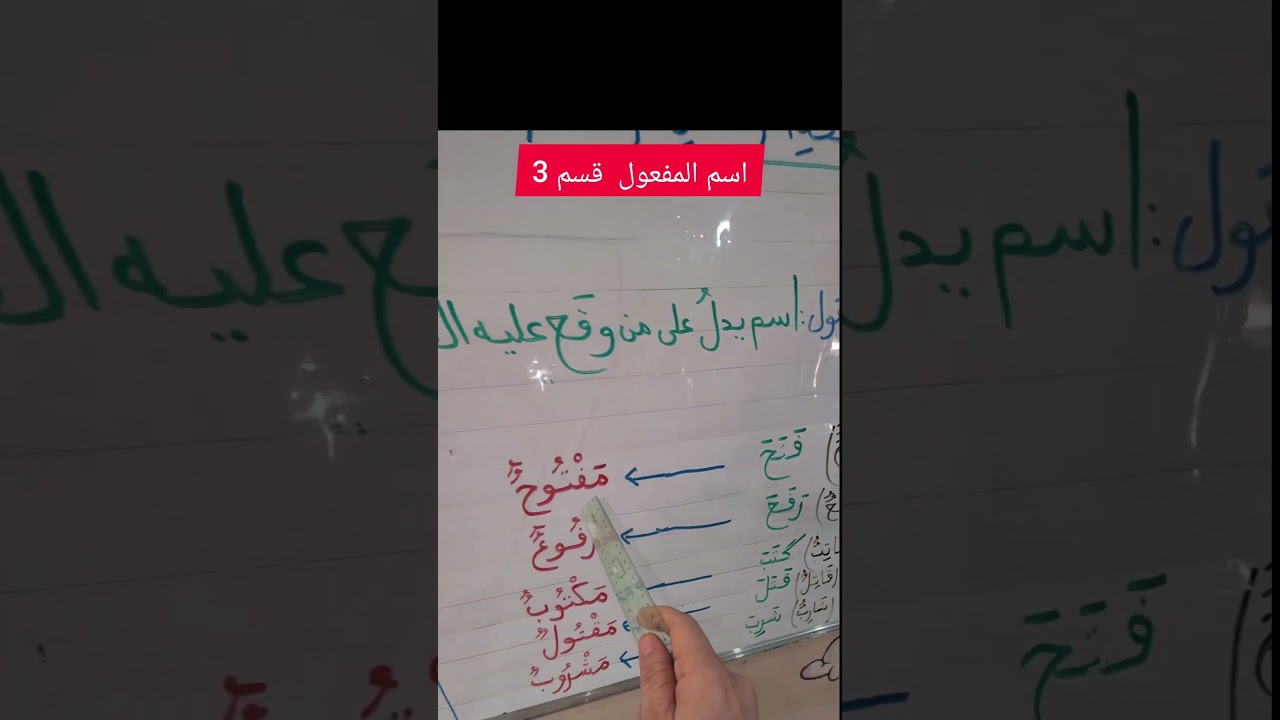 اسم المفعول قسم 3
ول: اسم يدلُ على من وقَع عليه ال
فَتَحَ ← مَفْتُوحٌ
رَفَعَ ← رفُوعٌ
كَتَبَ ← مَكْتُوبٌ
(قَاتِلٌ) قَتَلَ ← مَقْتُولٌ
(شَارِبٌ) شَرِبَ ← مَشْرُوبٌ